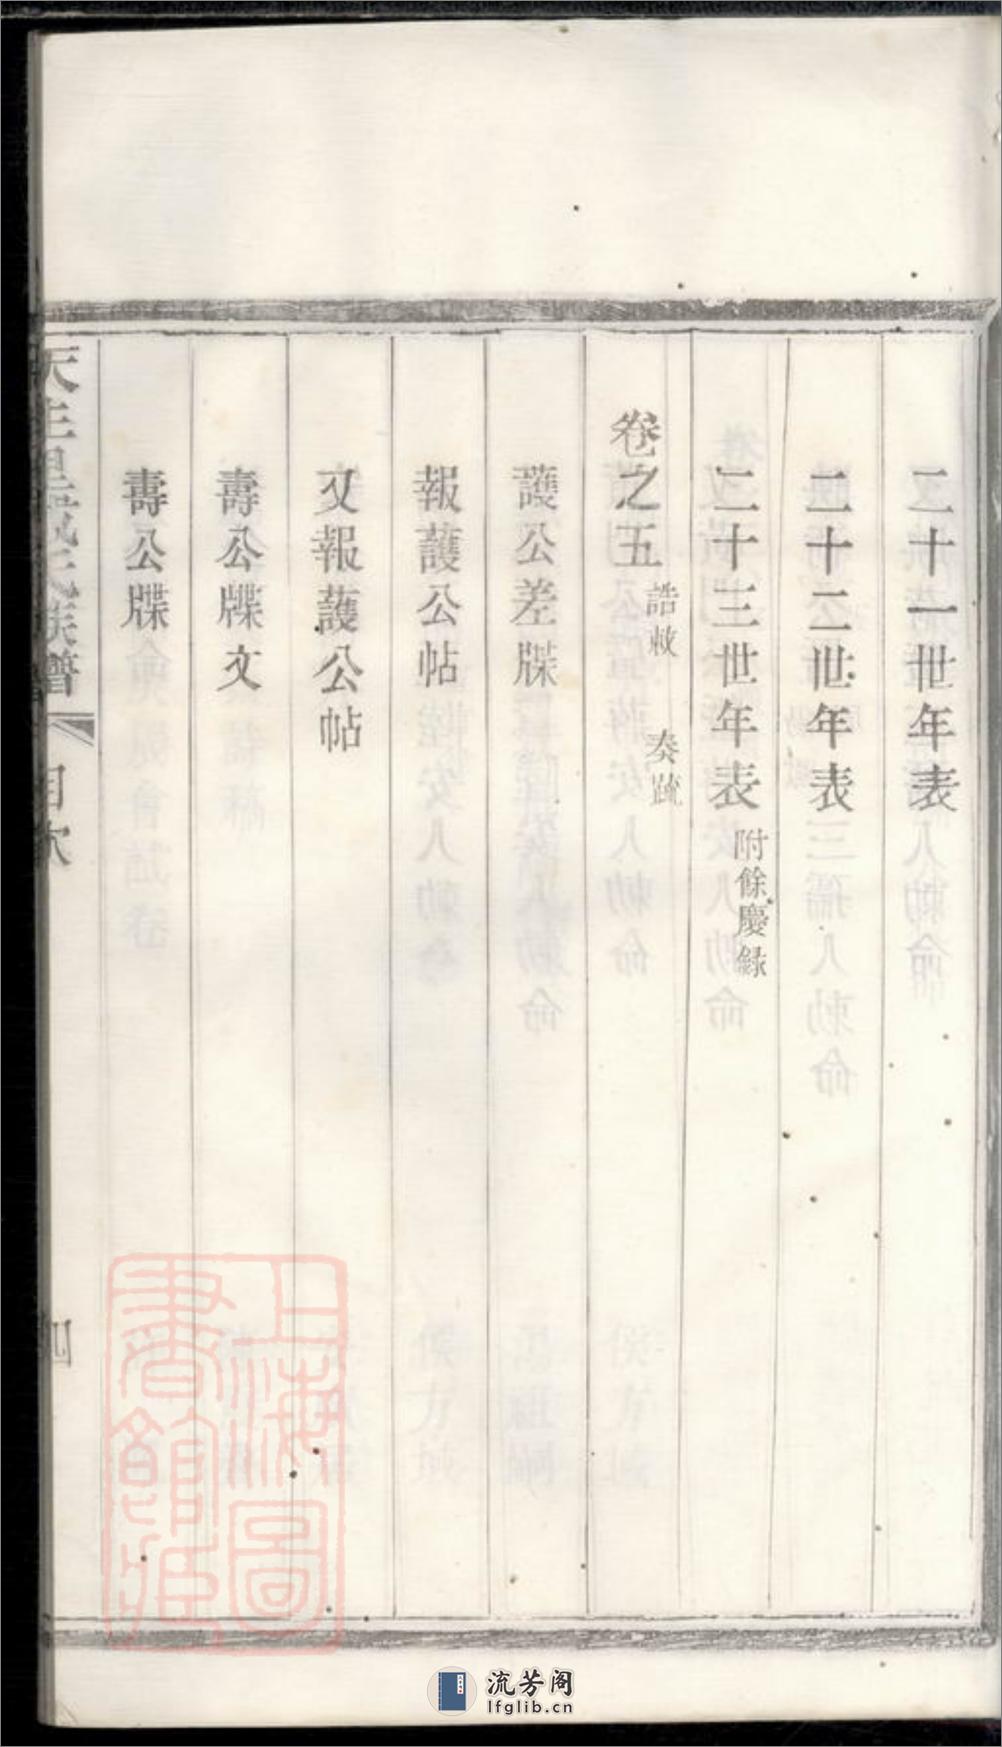 二十一世年表
二十二世年表
二十三世年表 附餘慶録
卷之五 誥敕 奏䟽
護公差牒
報護公帖
又報護公帖
壽公牒文
壽公牒
族譜
目次
四
上海圖書館藏
流芳阁
lfglib.cn